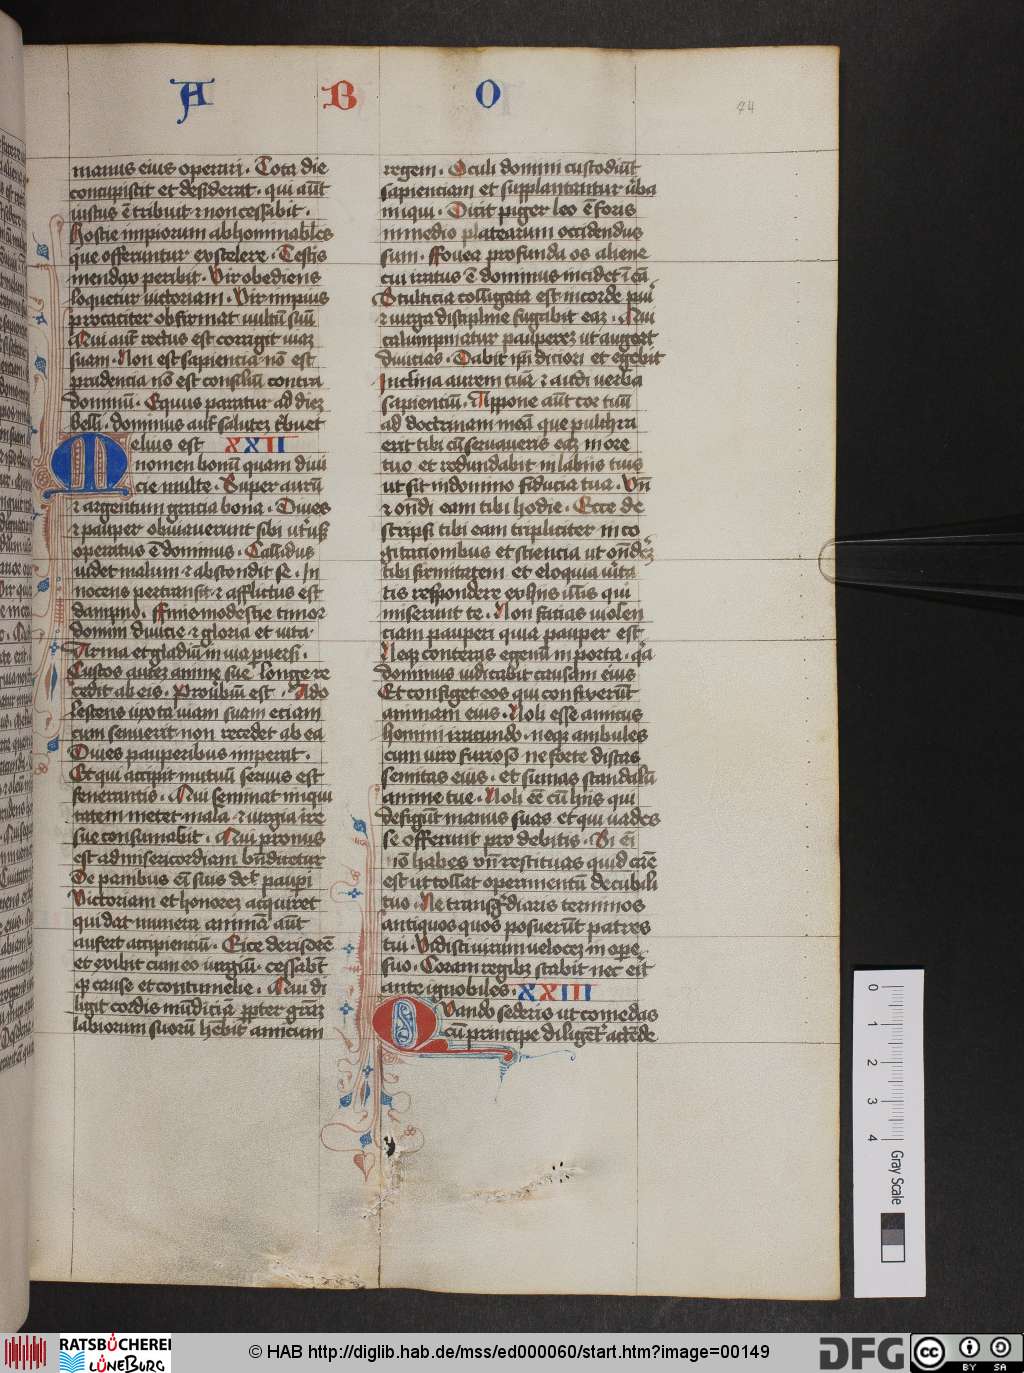 A B O
74
manus eius operari . Tota die
concupiscit et desiderat . qui aūt
iustus ē tribuit ⁊ non cessabit .
Hostie impiorum abhominabiles
que offeruntur ex scelere . Testis
mendax peribit . Vir obediens
loquetur victoriam . Vir impius
procaciter obfirmat vultū suū
Qui aūt rectus est corrigit viaz
suam . Non est sapiencia nō est
prudencia nō est consiliū contra
dominū . Equus paratur ad diez
belli . dominus aut̄ salutez tribuet
Melius est XXII
nomen bonū quam divi
cie multe . Super aurū
⁊ argentum gracia bona . Dives
⁊ pauper obviaverunt sibi utriusq
operatus ē dominus . Callidus
videt malum ⁊ abscondit se . In
nocens pertransit ⁊ afflictus est
dampno . ffinis modestie timor
domini divicie ⁊ gloria et vita .
Arma et gladiū in via pversi .
Custos autez anime sue longe re
cedit ab eis . Proverbiū est . Ado
lescens iuxta viam suam etiam
cum senuerit non recedet ab ea
Dives pauperibus imperat .
Et qui accipit mutuū servus est
fenerantis . Qui seminat iniqui
tatem metet mala ⁊ virgia ire
sue consumabit . Qui pronus
est ad misericordiam bn̄dicetur
De panibus eī suis dedit paupi
Victoriam et honorez acquiret
qui dat munera animā aūt
aufert accipienciū . Eice derisorē
et exibit cum eo iurgiū . cessabūt
qȝ cause et contumelie . Qui di
ligit cordis mūdiciā propter grāz
labiorum suorū habebit amicum
regem . Oculi domini custodiūt
sapienciam et supplantantur verba
iniqui . Dicit piger leo ē foris
in medio platearum occidendus
sum . ffovea profunda os aliene
cui iratus ē dominus incidet ī eā
Stulticia colligata est in corde pueri
⁊ virga discipline fugabit eaz . Qui
calumpniatur pauperez ut augeat
divicias . Dabit ipī diciori et egebit
Inclina aurem tuā ⁊ audi verba
sapienciū . Appone aūt cor tuū
ad doctrinam meā que pulchra
erit tibi cū servaveris eaz in ore
tuo et redundabit in labiis tuis
ut sit in domino fiducia tua . Vn̄
⁊ on̄di eam tibi hodie . Ecce de
scripsi tibi eam tripliciter in co
gitacionibus et sciencia ut on̄derez
tibi firmitatem et eloquia verita
tis respondere ex hiis illis qui
miserunt te . Non facias violen
ciam pauperi quia pauper est
Neqȝ conteras egenū in porta . qa
dominus iudicabit causam eius
Et configet eos qui confixerūt
animam eius . Noli esse amicus
homini iracundo . neqȝ ambules
cum viro furioso ne forte discas
semitas eius . et sumas scandalū
anime tue . Noli ēē cū hiis qui
defigūt manus suas et qui vades
se offerunt pro debitis . Si eī
nō habes vn̄ restituas quid cāē
est ut tollat operimentū de cubili
tuo . Ne transgrediaris terminos
antiquos quos posuerūt patres
tui . Vidisti virum velocez in opere
suo . Coram regibȝ stabit nec erit
ante ignobiles . XXIII
Quando sederis ut comedas
cū principe diligenter attēde
0
1
2
3
4
Gray Scale
RATSBÜCHEREI
LÜNEBURG
© HAB http://diglib.hab.de/mss/ed000060/start.htm?image=00149
DFG
cc
BY SA